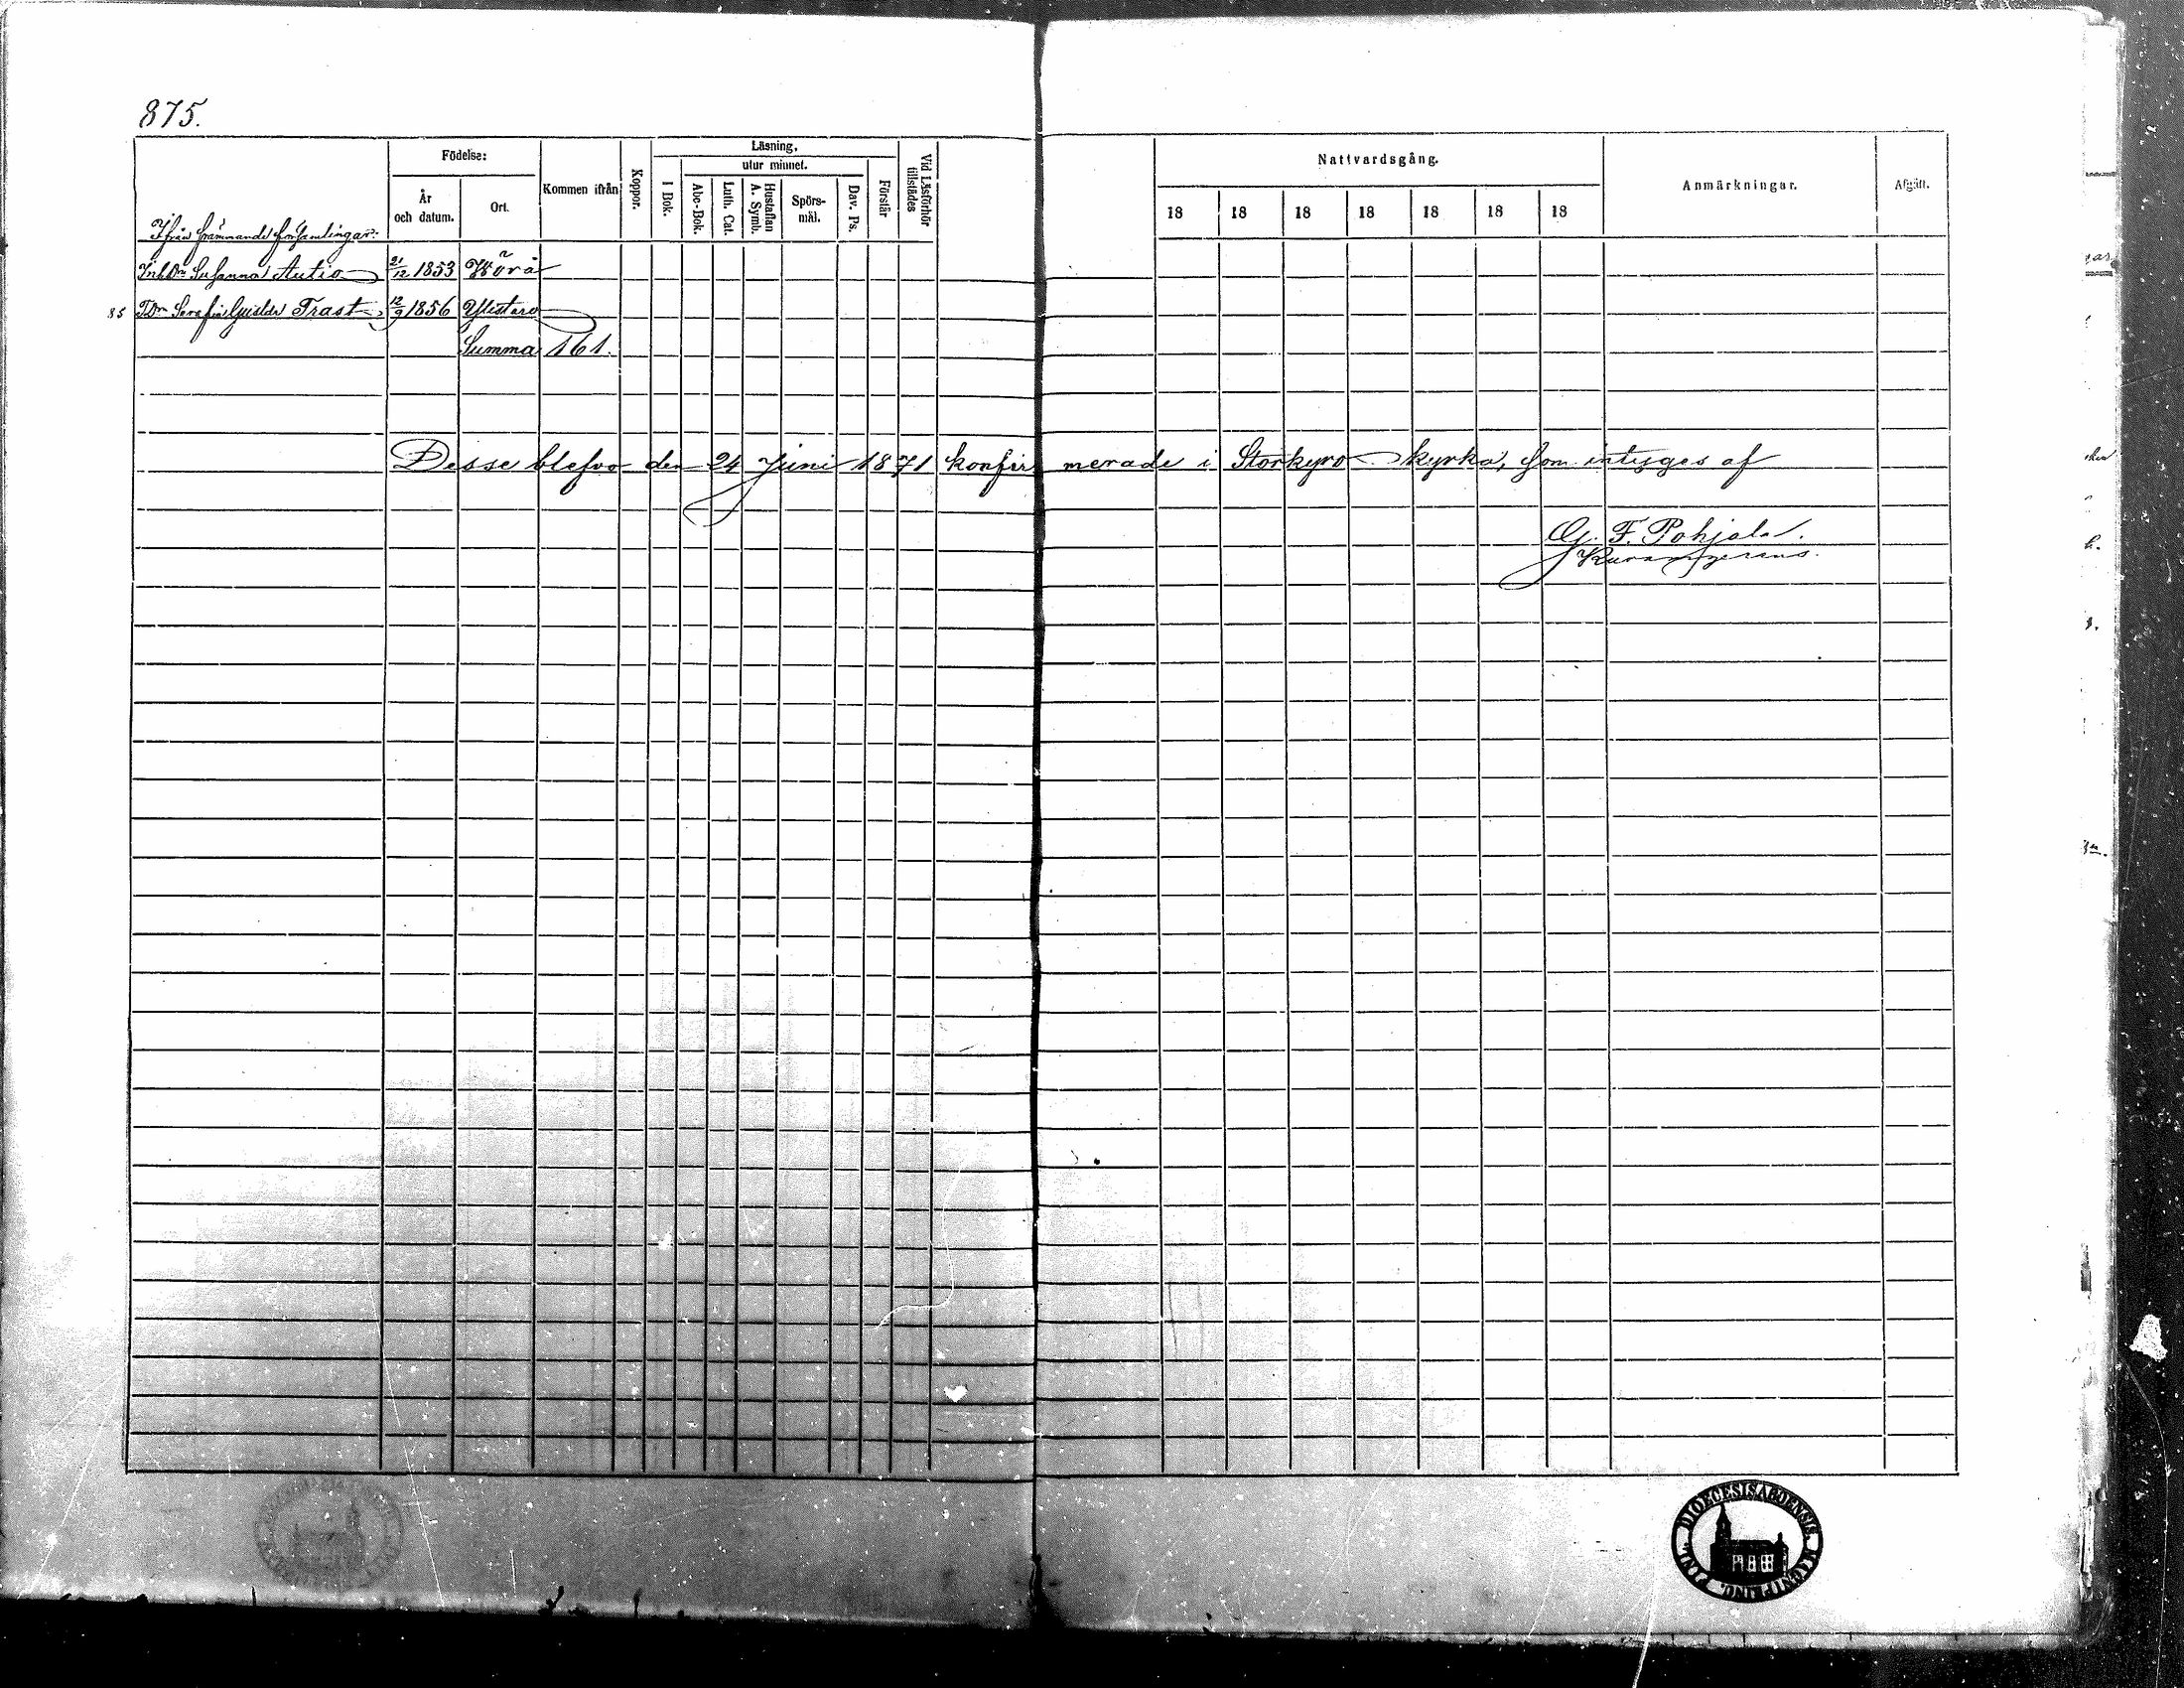 875.
Födelse:
Kommen ifrån
Koppor.
Läsning,
utur minnet.
Vid Läsförhör tillstädes
Nattvardsgång.
Anmärkningar.
Afgått.
År och datum.
Ort.
I Bok.
Abc-Bok.
Luth. Cat.
Hustaflan A. Symb.
Spörs-mål.
Dav. Ps.
Förstår
18 18 18 18 18 18 18
Ifrån främmande församlingar:
Inh.Dr Susanna Autio 21/12 1853 Wörå
85 TDr Serafia Trast 12/9 1856 Ylistaro
Summa 161.
Desse blefvo den 24 Juni 1871 konfirmerade i Storkyro kyrka, som intygas af
G. F. Pohjala.
DIOECESIS ABOENSIS.